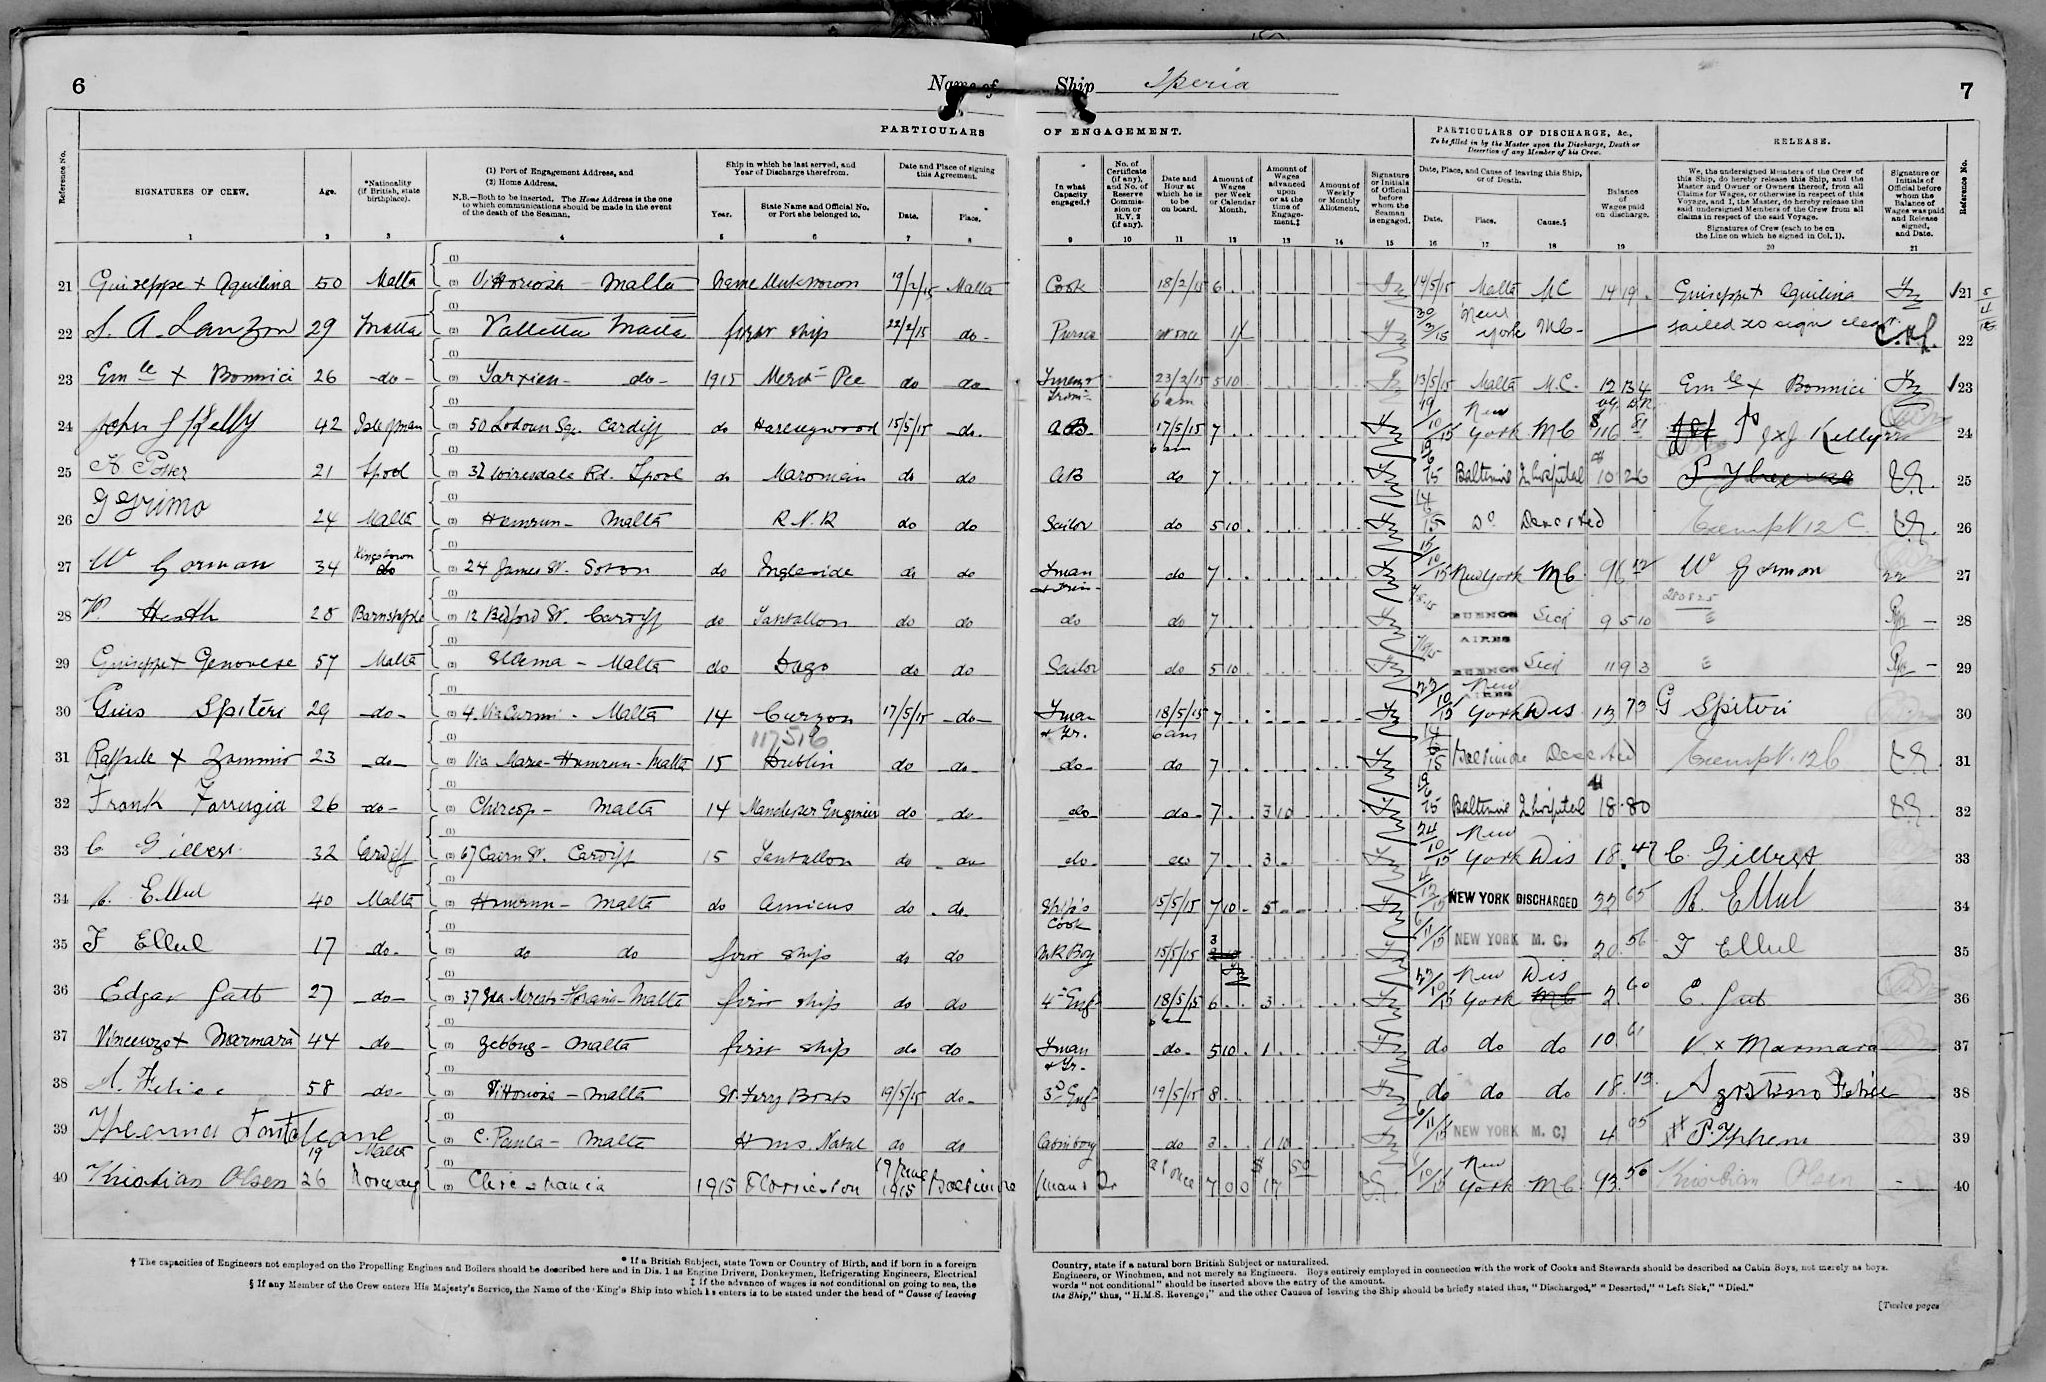 6
Name of Ship Iperia
7
PARTICULARS OF ENGAGEMENT.
PARTICULARS OF DISCHARGE, &c.,
To be filled in by the Master upon the Discharge, Death or Desertion of any Member of his Crew.
RELEASE.
Reference No.
SIGNATURES OF CREW.
Age.
*Nationality (if British, state birthplace).
(1) Port of Engagement Address, and
(2) Home Address.
N.B.—Both to be inserted. The Home Address is the one to which communications should be made in the event of the death of the Seaman.
Ship in which he last served, and Year of Discharge therefrom.
Year.
State Name and Official No. or Port she belonged to.
Date and Place of signing this Agreement.
Date.
Place.
In what Capacity engaged.†
No. of Certificate (if any), and No. of Reserve Commission or R.V. 2 (if any).
Date and Hour at which he is to be on board.
Amount of Wages per Week or Calendar Month.
Amount of Wages advanced upon or at the time of Engagement.‡
Amount of Weekly or Monthly Allotment.
Signature or Initials of Official before whom the Seaman is engaged.
Date, Place, and Cause of leaving this Ship, or of Death.
Date.
Place.
Cause.§
Balance of Wages paid on discharge.
We, the undersigned Members of the Crew of this Ship, do hereby release this Ship, and the Master and Owner or Owners thereof, from all Claims for Wages, or otherwise in respect of this Voyage, and I, the Master, do hereby release the said undersigned Members of the Crew from all claims in respect of the said Voyage.
Signatures of Crew (each to be on the Line on which he signed in Col. 1).
Signature or Initials of Official before whom the Balance of Wages was paid and Release signed, and Date.
Reference No.
1 2 3 4 5 6 7 8 9 10 11 12 13 14 15 16 17 18 19 20 21
21 Guiseppe x Aquilina 50 Malta (1) (2) Vittoriosa - Malta Name Unknown 19/2/15 Malta Cook 18/2/15 6 14/5/15 Malta M.C 14 19 Guiseppe x Aquilina 21
22 S. A. Lanzon 29 Malta (1) (2) Valletta Malta first ship 22/2/15 do at once 1/ 30/3/15 New York M.C. failed to sign clear 22
23 Em le x Bonnici 26 do (1) (2) Tarxien do 1915 do do 23/2/15 6 am 5 10 13/5/15 Malta M.C. 12 13 4 Em le x Bonnici 23
24 John J Kelly 42 Isle of man (1) (2) 50 Loudoun Sq. Cardiff do Harlingwood 15/5/15 do AB 17/5/15 6 am 7 19/10/15 New York M C $116 81 Kelly 24
25 21 Lpool (1) (2) 32 Rd. Lpool do do do AB do 7 19/6/15 Baltimore In hospital 10 26 25
26 G Grimo 24 Malta (1) (2) Hamrun - Malta R.N.R do do Sailor do 5 10 14/6/15 Do Deserted Exempt 12 C 26
27 W Gorman 34 Kingstown (1) (2) 24 James St. Soton do Ingleside do do Fman & Trim do 7 15/10/15 New York M C 96 12 W Gorman 27
28 W. Heath 28 Barnstaple (1) (2) 12 Bedford St. Cardiff do Tantallon do do do do 7 BUENOS AIRES Sick 9 5 10 28
29 Guiseppe x Genovese 57 Malta (1) (2) Sliema - Malta do Dago do do Sailor do 5 10 BUENOS AIRES Sick 11 9 3 29
30 Gius Spiteri 29 do (1) (2) 4. Via Curmi - Malta 14 Curzon 17/5/15 do Fman & Tr. 18/5/15 6 am 7 22/10/15 New York Dis 12 73 G Spiteri 30
117516
31 Raffaele x Zammit 23 do (1) (2) Via Marie - Hamrun - Malta 15 Dublin do do do do 7 14/6/15 Baltimore Deserted Exempt. 12 C 31
32 Frank Farrugia 26 do (1) (2) Chircop - Malta 14 Manchester Engineer do do do do 7 3 10 19/6/15 Baltimore In hospital 18.80 32
33 C Gilbert 32 Cardiff (1) (2) 67 Cairn St. Cardiff 15 Tantallon do do do do 7 3 24/10/15 New York Dis 18.47 C. Gilbert 33
34 R. Ellul 40 Malta (1) (2) Hamrun - Malta do Amicus do do Ship's Cook 15/5/15 7 10 5 4/12/15 NEW YORK DISCHARGED 32 65 R. Ellul 34
35 F Ellul 17 do (1) (2) do do first ship do do M R Boy 15/5/15 3 6/11/15 NEW YORK M. C. 20 56 F Ellul 35
36 Edgar Gatt 27 do (1) (2) 37 Floriana - Malta first ship do do 4th Eng 18/5/15 6 am 6 3 22/10/15 New York Dis 2 60 E. Gatt 36
37 Vincenzo x Marmara 44 do (1) (2) Zebbug - Malta first ship do do Fman & Tr. do 5 10 1 do do do 10 61 V. x Marmara 37
38 A. Felice 58 do (1) (2) Vittoriosa - Malta St. Ferry Boats 19/5/15 do 3d Eng 19/5/15 8 do do do 18 13 Agostino Felice 38
39 19 Malta (1) (2) C. Paula - Malta H.M.S. Natal do do Cabin boy do 3 1 10 6/11/15 NEW YORK M. C. 4 05 39
40 Kristian Olsen 26 Norway (1) (2) Christiania 1915 Florieston 19/June 1915 Baltimore Fman & Tr at once 7 0 0 $17 50 New York M C 93 50 Kristian Olsen 40
† The capacities of Engineers not employed on the Propelling Engines and Boilers should be described here and in Dis. 1 as Engine Drivers, Donkeymen, Refrigerating Engineers, Electrical Engineers, or Winchmen, and not merely as Engineers. Boys entirely employed in connection with the work of Cooks and Stewards should be described as Cabin Boys, not merely as boys.
* If a British Subject, state Town or Country of Birth, and if born in a foreign Country, state if a natural born British Subject or naturalized.
‡ If the advance of wages is not conditional on going to sea, the words "not conditional" should be inserted above the entry of the amount.
§ If any Member of the Crew enters His Majesty's Service, the Name of the King's Ship into which he enters is to be stated under the head of "Cause of leaving the Ship," thus, "H.M.S. Revenge;" and the other Causes of leaving the Ship should be briefly stated thus, "Discharged," "Deserted," "Left Sick," "Died."
[Twelve pages